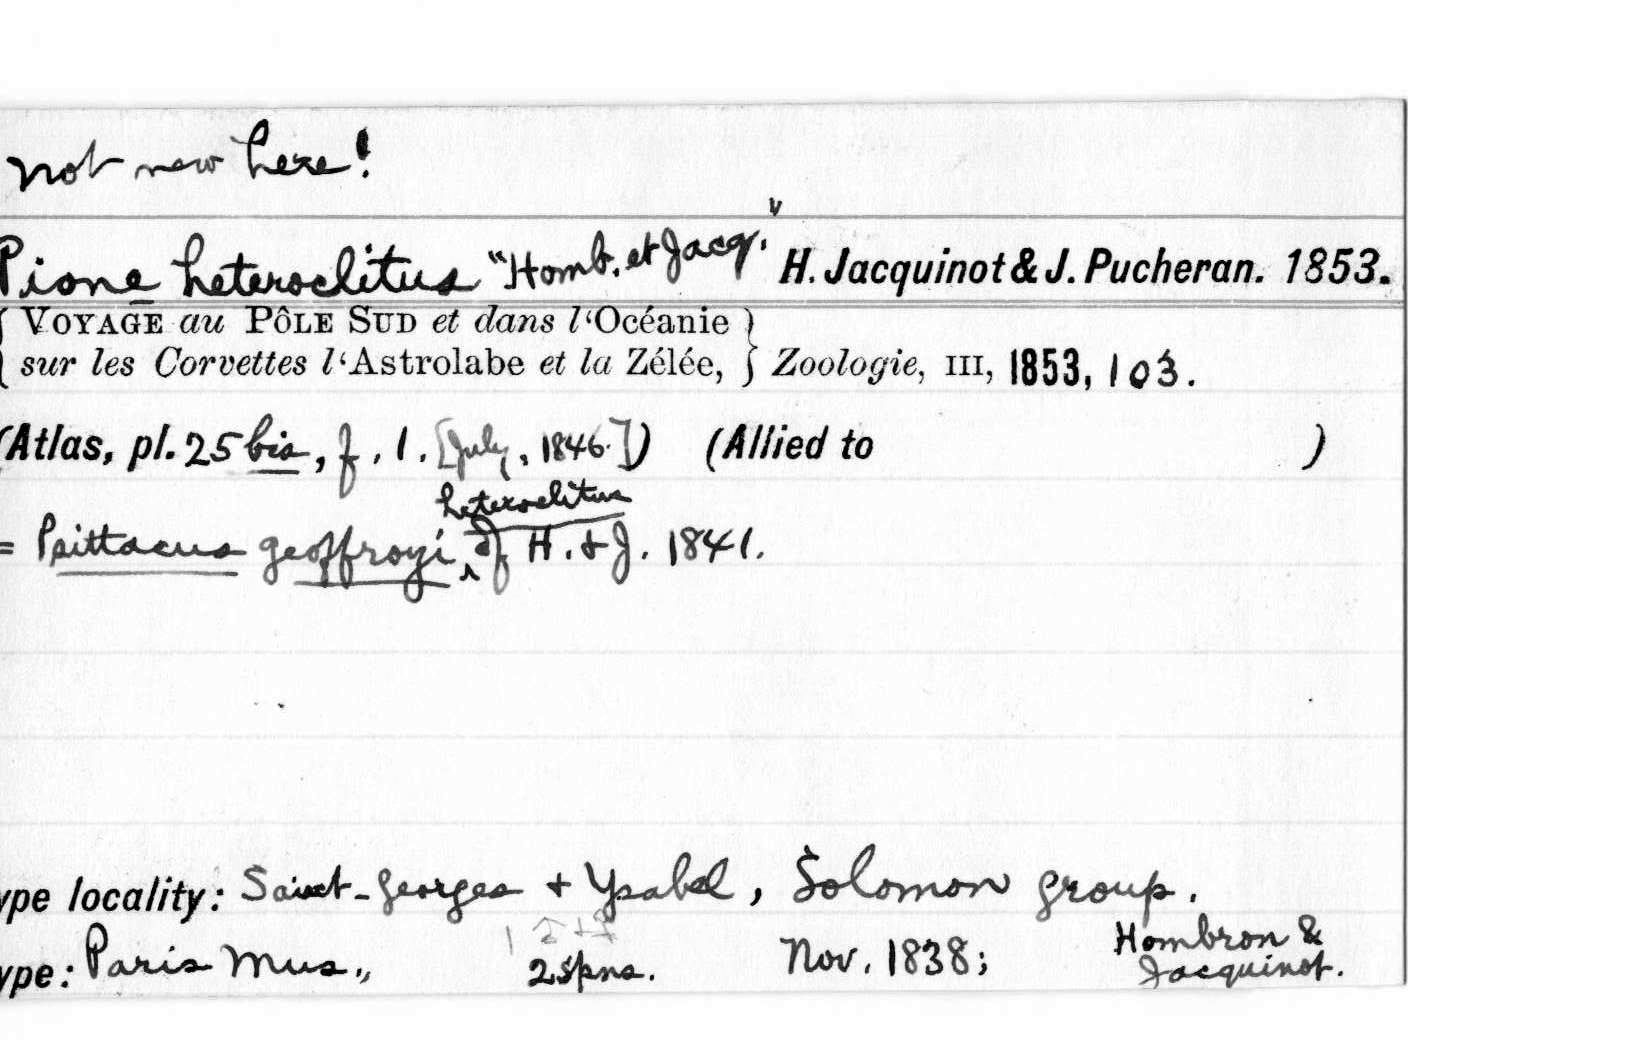 not new here!
Pione heteroclitus "Homb. et Jacq." H. Jacquinot & J. Pucheran. 1853.
{ VOYAGE au PôLE SUD et dans l‘Océanie }
{ sur les Corvettes l‘Astrolabe et la Zélée, } Zoologie, III, 1853, 103.
(Atlas, pl. 25 bis, f. 1. [July, 1846.]) (Allied to )
heteroclitus
= Psittacus geoffroyi ‸ of H. & J. 1841.
ype locality: Saint-Georges + Ysabel, Solomon group.
1 ♂ + ♀
ype: Paris Mus., 2 spns. Nov. 1838; Hombron &
Jacquinot.